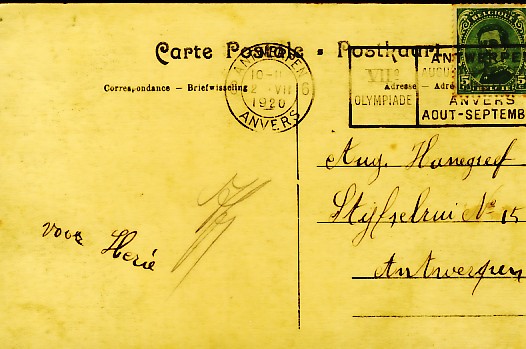 BELGIQUE
Carte Postale - Postkaart
ANTWERPEN 6
10-11
2 VII
1920
ANVERS
VIIe
OLYMPIADE
ANTWERPEN
AUGUS
ANVERS
AOUT-SEPTEMB
5 5
Correspondance — Briefwisseling
Adresse — Adre
Aug.
No 15
Antwerpen
voor